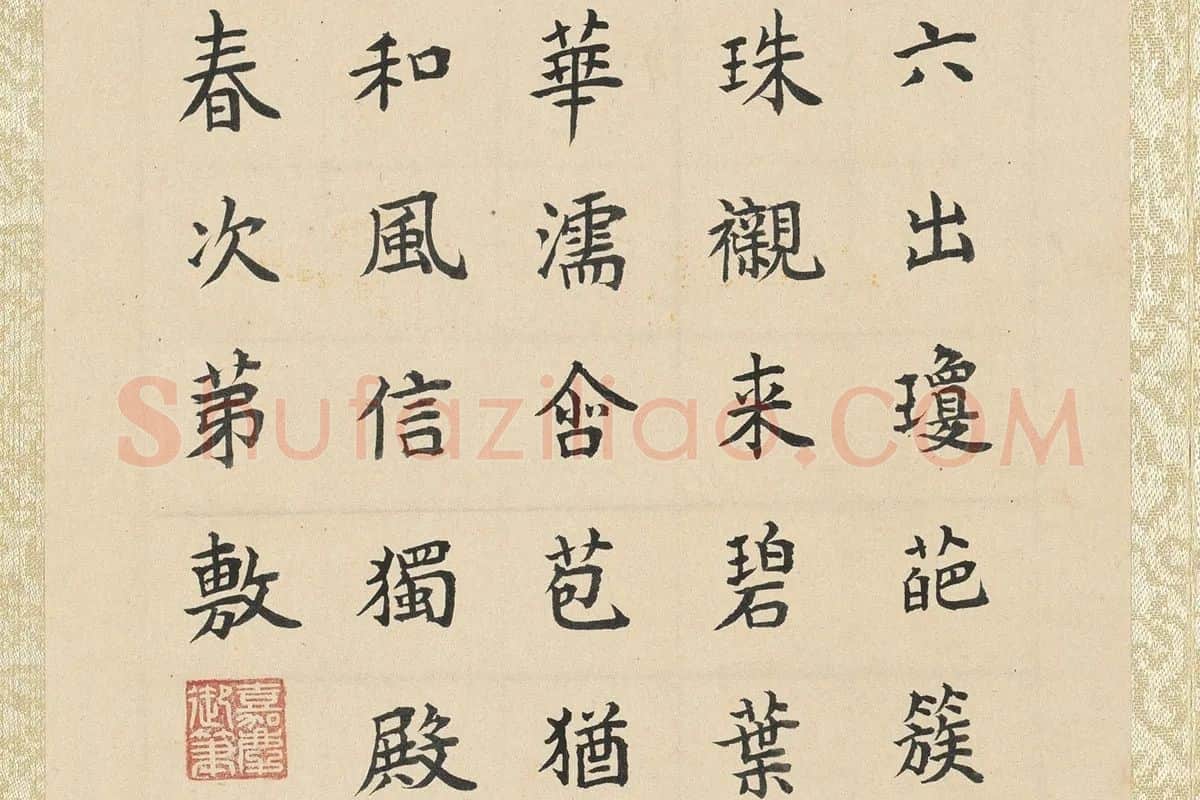 六出瓊葩簇
珠襯来碧葉
華濡苞猶
和風信獨殿
春次苐敷
嘉慶御筆
Shufaziliao.COM